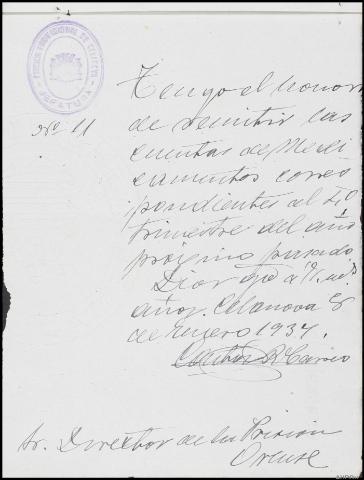 PRISION PROVINCIAL DE CELANOVA
JEFATURA
Nº 11
Tengo el honor
de remitir las
cuentas de Medi
camentos corres
pondientes al 4º
trimestre del año
próximo pasado.
Dios gde a V. ms.
años. Celanova 8
de Enero 1937.
Sr. Director de la Prisión
Orense